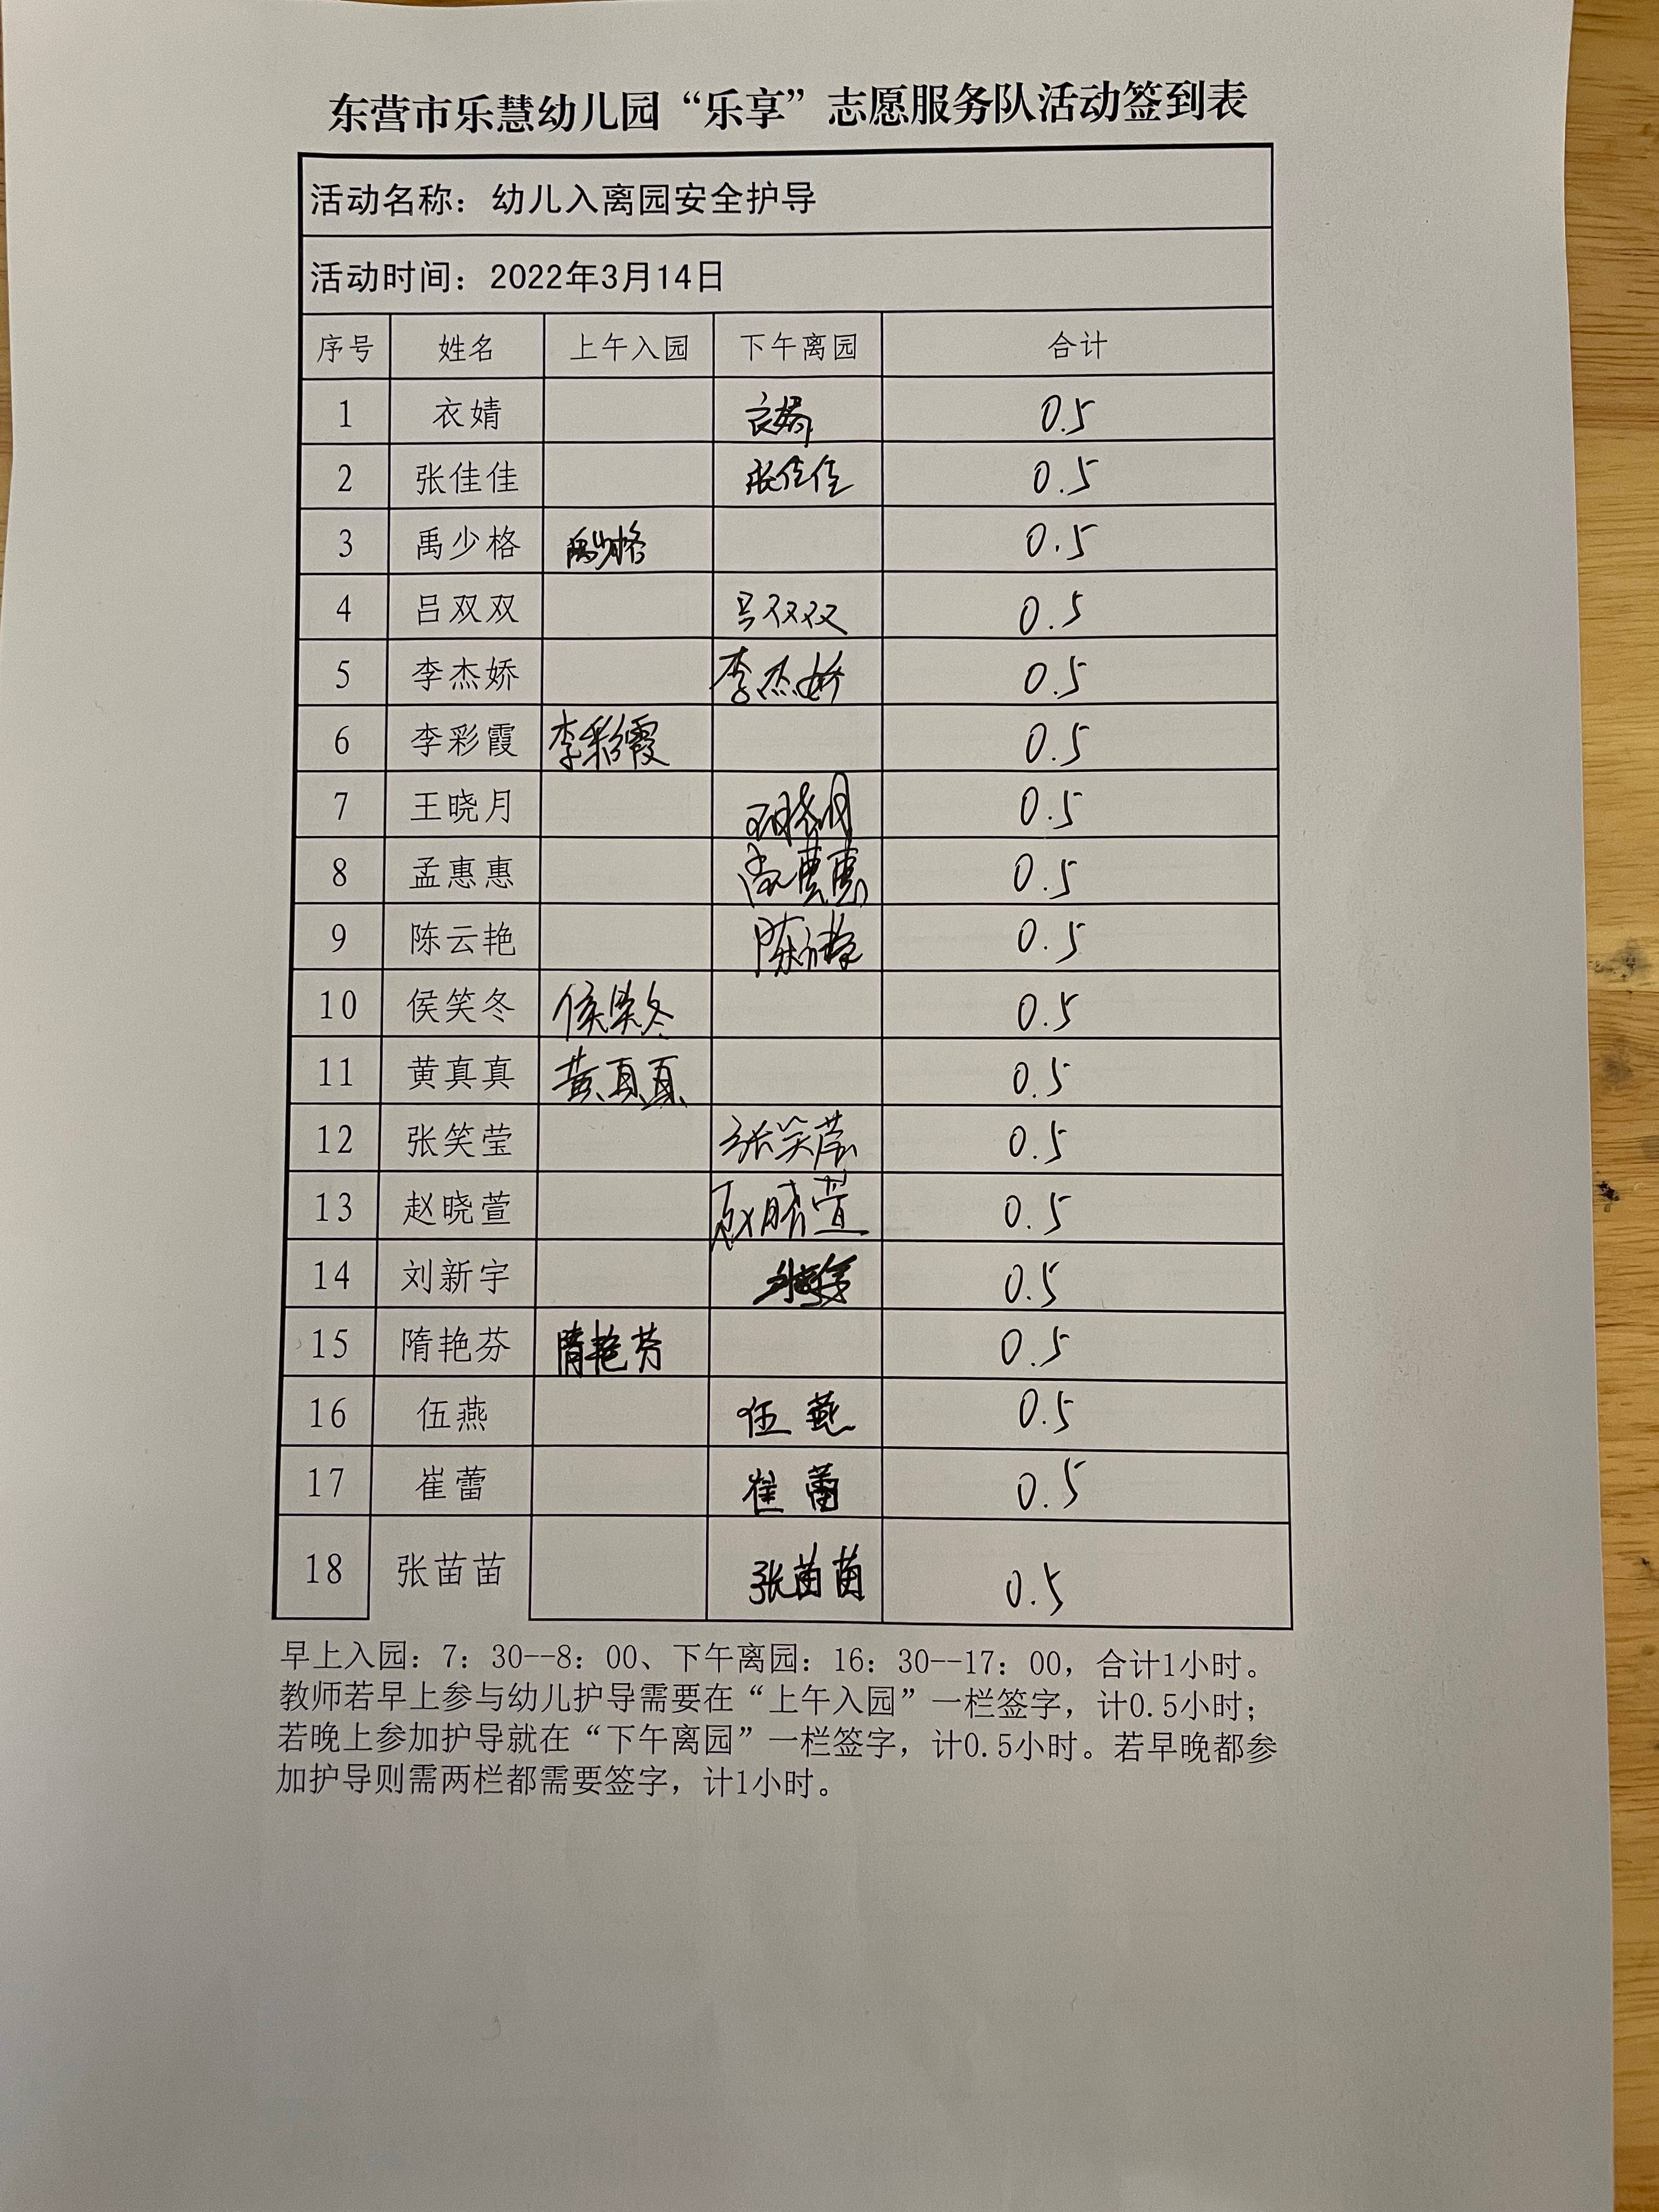 东营市乐慧幼儿园“乐享”志愿服务队活动签到表
活动名称：幼儿入离园安全护导
活动时间：2022年3月14日
序号 姓名 上午入园 下午离园 合计
1 衣婧 衣婧 0.5
2 张佳佳 张佳佳 0.5
3 禹少格 禹少格 0.5
4 吕双双 吕双双 0.5
5 李杰娇 李杰娇 0.5
6 李彩霞 李彩霞 0.5
7 王晓月 王晓月 0.5
8 孟惠惠 孟惠惠 0.5
9 陈云艳 陈云艳 0.5
10 侯笑冬 侯笑冬 0.5
11 黄真真 黄真真 0.5
12 张笑莹 张笑莹 0.5
13 赵晓萱 赵晓萱 0.5
14 刘新宇 刘新宇 0.5
15 隋艳芬 隋艳芬 0.5
16 伍燕 伍燕 0.5
17 崔蕾 崔蕾 0.5
18 张苗苗 张苗苗 0.5
早上入园：7：30--8：00、下午离园：16：30--17：00，合计1小时。
教师若早上参与幼儿护导需要在“上午入园”一栏签字，计0.5小时；
若晚上参加护导就在“下午离园”一栏签字，计0.5小时。若早晚都参
加护导则需两栏都需要签字，计1小时。